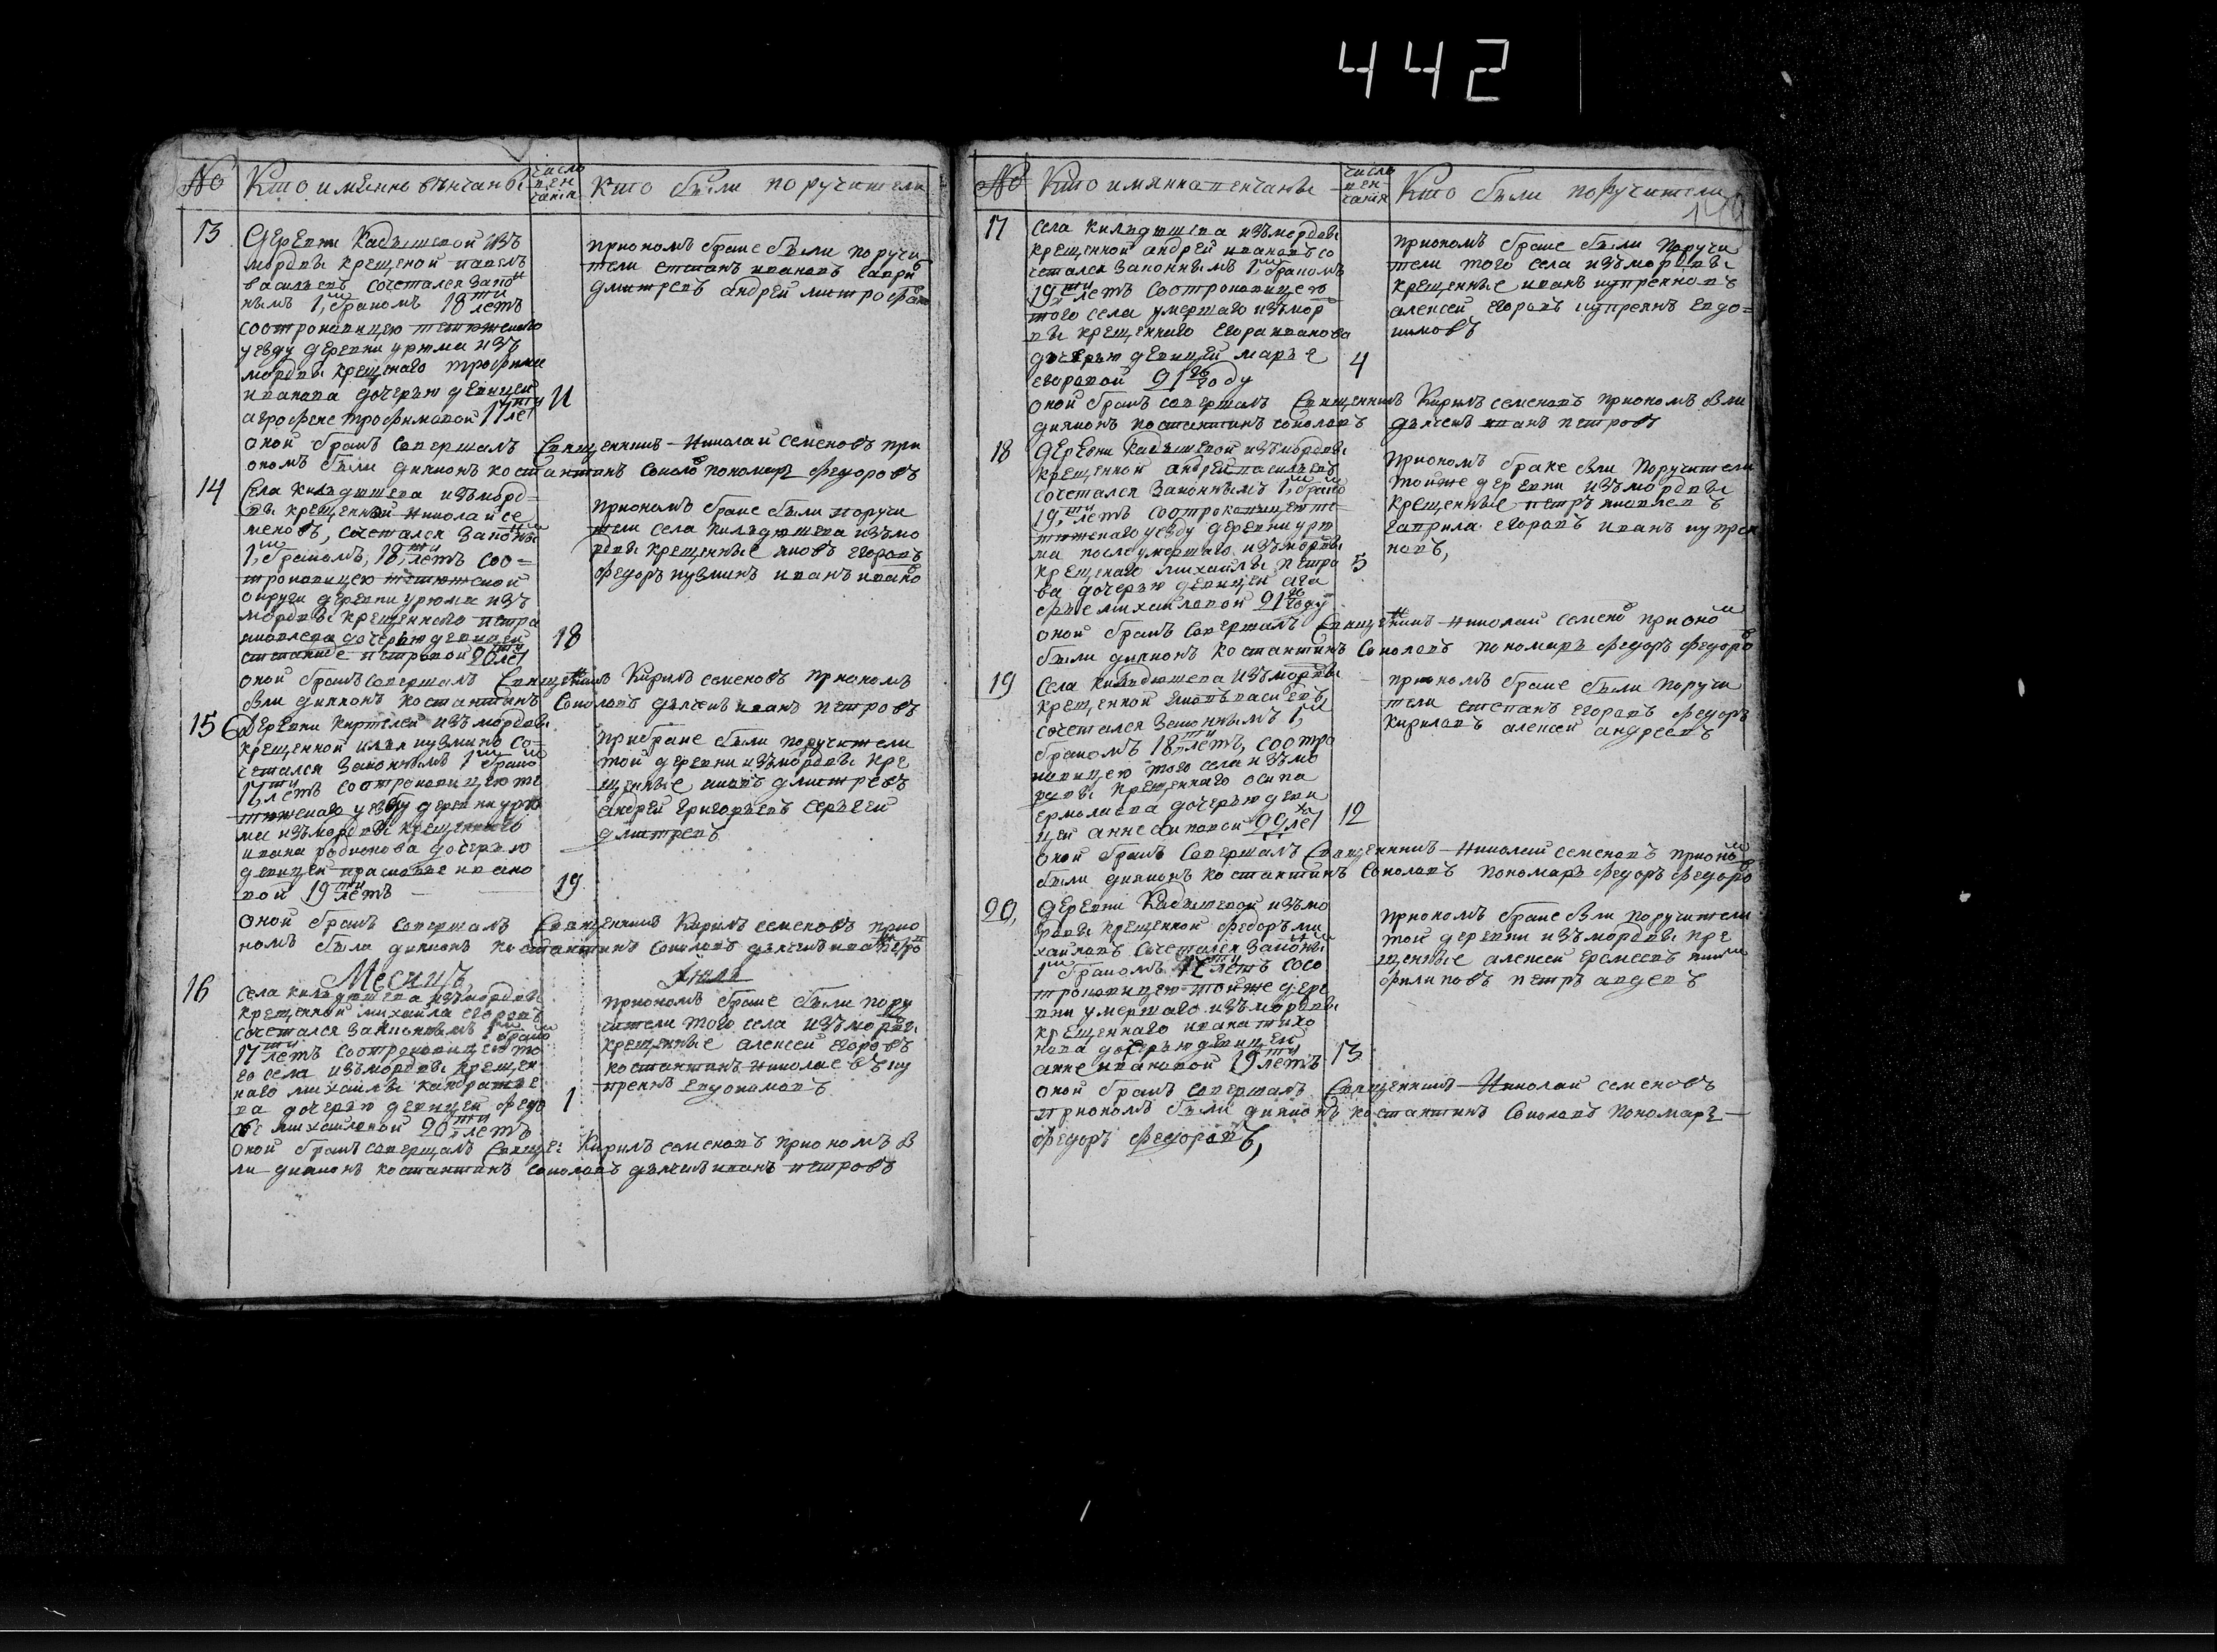 442
№ Кто имянно венчаны число вен чания Кто были поручители
13 Деревни Кадышевой изъ
мордвы крещеной павелъ
васильевъ сочетался зако
нымъ 1, бракомъ 18 ти летъ
соотроковицею тетюшскаго
уезду деревни урюма изъ
мордвы крещенаго трофима
иванова дочерью девицей
агрофене трофимовой 17 ти лет
11
приономъ браке были поручи
тели степанъ ивановъ гаври
дмитревъ андрей митрофан
оной бракъ совершалъ Священникъ Николай семеновъ при
ономъ были диаконъ костантинъ соколо пономарь федоровъ
14 Села кильдюшева изъ морд=
вы крещенной николай се
меновъ, сочетался законы
1, бракомъ, 18, ти летъ соо=
троковицею тетюшской
округи деревни урюма изъ
мордвы крещенного петра
яковлева дочерью девицей
степаниде петровой 20 ти лет
18
приономъ браке были поручи
тели села кильдюшева изъ мо
рдвы крещенные яковъ егоровъ
федоръ кузминъ иванъ ивано
оной бракъ совершалъ Священикъ Кирилъ семеновъ приономъ
были диаконъ костантинъ Соколовъ дьячекъ иванъ петровъ
15 Деревни Киртелей изъ мордвы
крещенной илья кузмино со=
четался законнымъ 1 брако
17, ти летъ соотроковицею те
тюшскаго уезду деревни урю
ма изъ мордвы крещеннаго
ивана родионова дочерью
девицей прасковье ивано
вой 19 ти летъ
19
прибраке были поручители
той деревни изъ мордвы кре
щенные яковъ дмитревъ
андрей григорьевъ сергей
дмитревъ
оной бракъ совершалъ Священникъ Кирилъ семеновъ прио
номъ были диаконъ костантинъ соколовъ дьячекъ иванъ петро
Месяцъ Июль
16 Села кильдюшева изъ мордвы
крещенной михайла егоровъ
сочетался законнымъ 1 брако
17 ти летъ соотроковицею то
го села изъ мордвы крещен
наго михайлы кандратье
ва дочерью девицей федо
се михайловой 20 ти летъ
1
приономъ браке были пору
чители того села изъ мордвы
крещенные алексей егоровъ
костантинъ николаевъ ку
преянъ евдокимовъ
оной бракъ совершалъ Свяще: Кирилъ семеновъ приономъ б
ли диаконъ костантинъ соколовъ дьячекъ иванъ петровъ
№ Кто имянна венчаны число вен чания Кто были поручители
17 села кильдюшева изъ мордвы
крещенной андрей ивановъ со
четался законнымъ 1, бракомъ
19 ти летъ соотроковицею
того села умершаго изъ мор
вы крещеннаго егора иванова
дочерью девицей марье
егоровой 21 го году
4
приономъ браке были поручи
тели того села изъ мордвы
крещенные иванъ купреяновъ
алексей егоровъ купреянъ евдо=
кимовъ
оной бракъ совершалъ Священникъ Кирилъ семеновъ приономъ были
диаконъ костантинъ соколовъ дьячекъ иванъ петровъ
18 Деревни кадышевой изъ мордвы
крещенной андрей васильевъ
сочетался законнымъ 1, брако
19, ти летъ соотроковицею те=
тюшскаго уезду деревни урю
ма после умершаго изъ мордвы
крещенаго михайлы петро
ва дочерью девицей ага
фье михайловой 21 го году
5
Приономъ браке были Поручители
тойже деревни изъ мордвы
крещенные петръ яковлевъ
гаврила егоровъ иванъ купрея
новъ,
оной бракъ совершалъ Священикъ Николай семено приono
были диаконъ костантинъ Соколовъ пономарь федоръ федоро
19 Села кильдюшева изъ мордвы
крещенной яковъ васильевъ
сочетался законнымъ 1,
бракомъ 18 ти летъ, соотро
ковицею того села изъ мо
рдвы крещеннаго осипа
ермолаева дочерью деви
цей анне осиповой 22 летъ
12
приономъ браке были поручи
тели степанъ егоровъ федоръ
кириловъ алексей андреевъ
оной бракъ совершалъ Священникъ Николай семеновъ приономъ
были диаконъ костантинъ Соколовъ пономарь федоръ федоро
20, Деревни Кадышевой изъ мо
рдвы крещенной федоръ ми
хайловъ сочетался законы
1 бракомъ 17 ти летъ сосо
троковицею тойже дере
вни умершаго изъ мордвы
крещеннаго ивана тихо
нова дочерью девицей
анне ивановой 19 ти летъ
13
приономъ браке были поручители
той деревни изъ мордвы кре
щенные алексей еремеевъ
филиповъ петръ авдеевъ
оной бракъ совершалъ Священникъ Николай семеновъ
приономъ были диаконъ костантинъ Соколовъ пономарь
федоръ федоровъ,